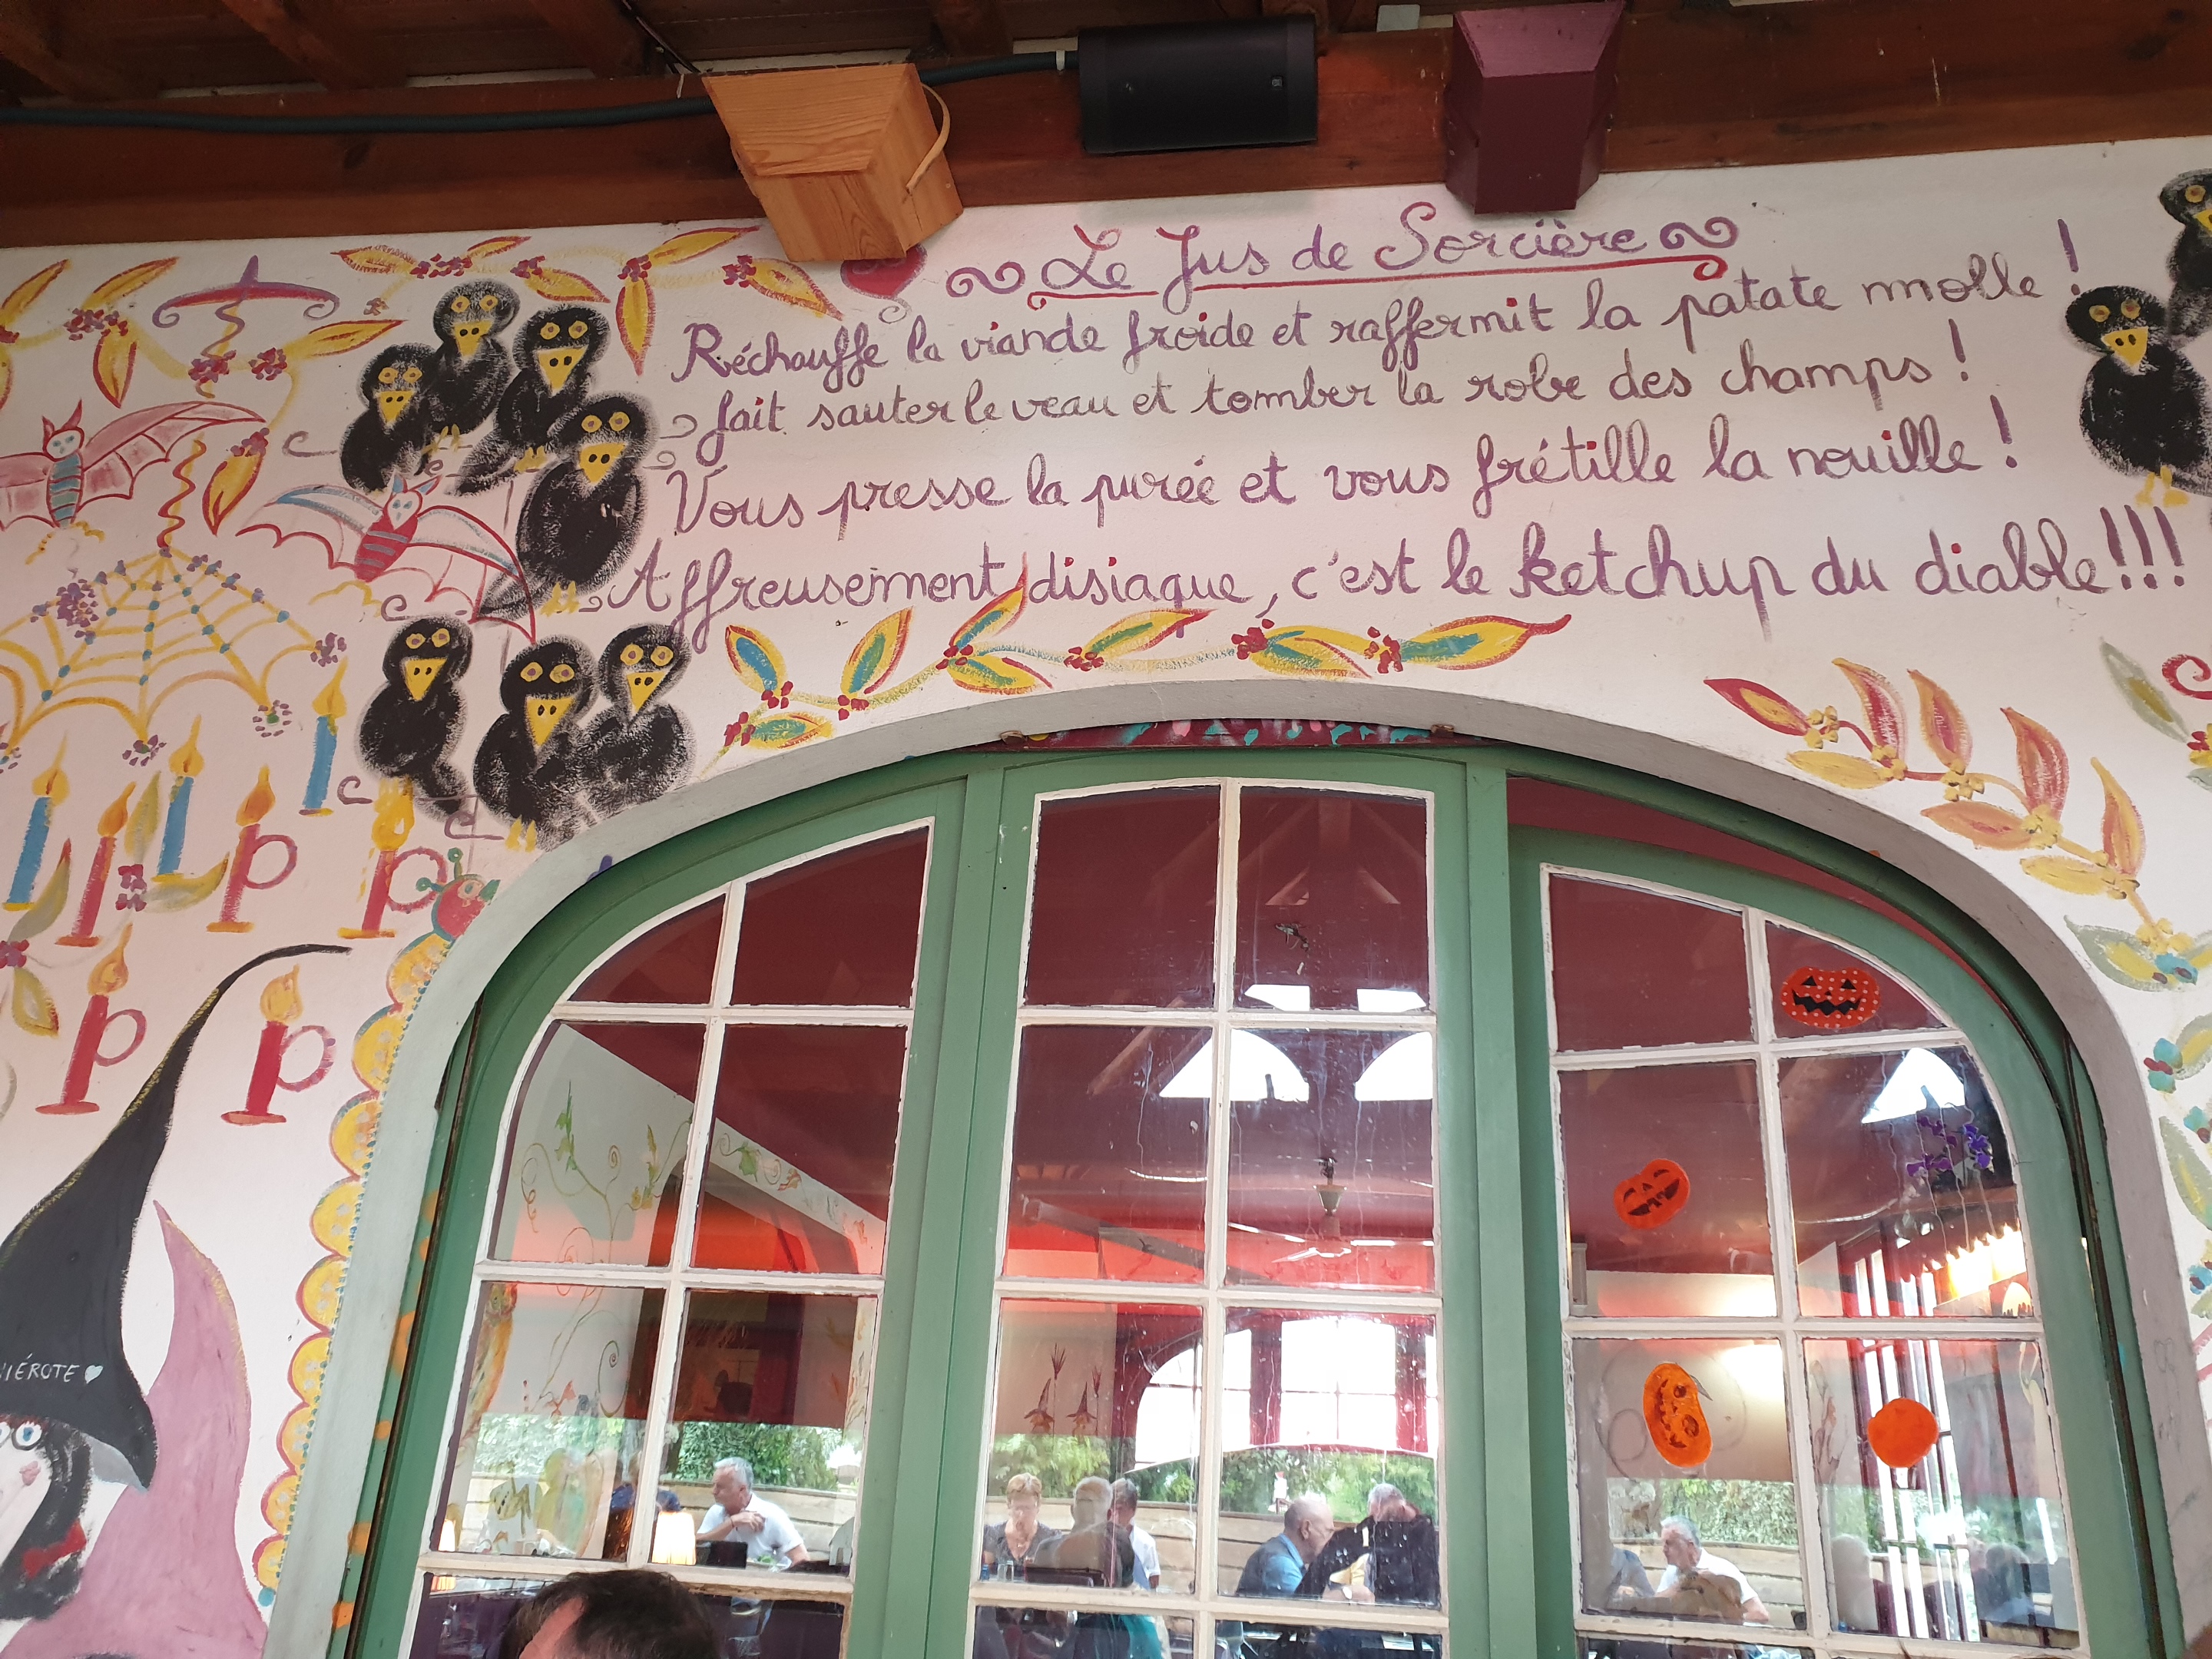 Le Jus de Sorcière
Réchauffe la viande froide et raffermit la patate molle !
fait sauter le veau et tomber la robe des champs !
Vous presse la purée et vous frétille la nouille !
Affreusement disiaque, c'est le ketchup du diable !!!